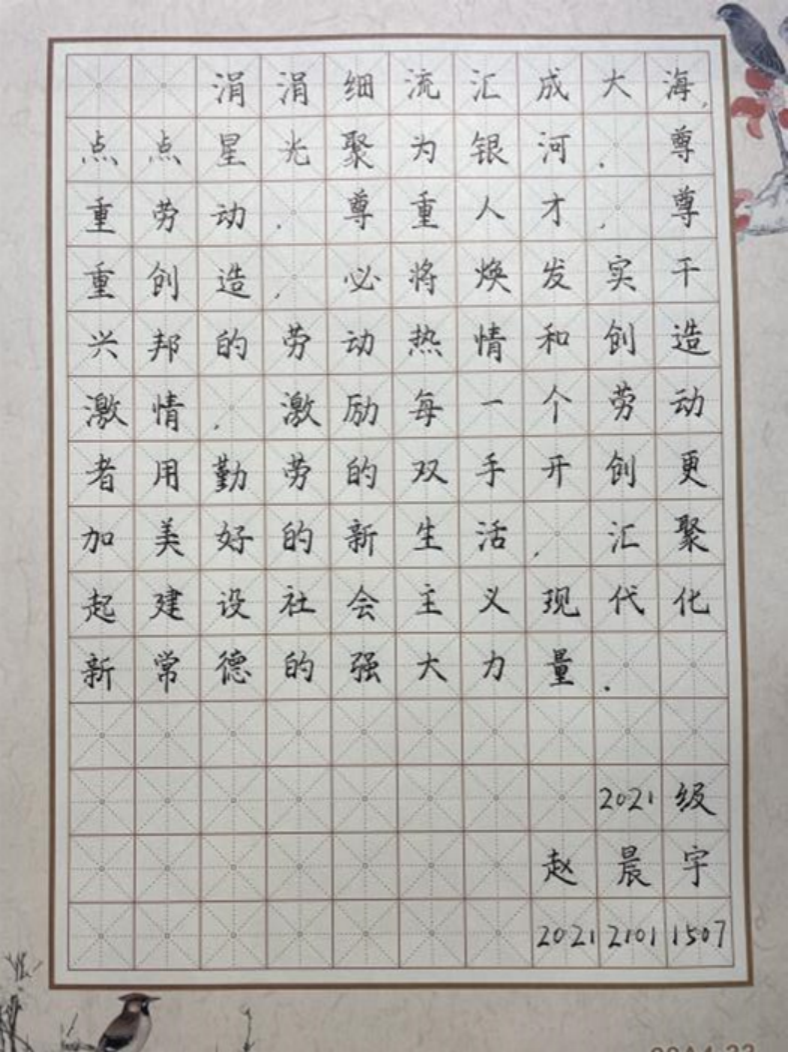 涓涓细流汇成大海,
点点星光聚为银河.尊
重劳动.尊重人才,尊
重创造,必将焕发实干
兴邦的劳动热情和创造
激情,激励每一个劳动
者用勤劳的双手开创更
加美好的新生活,汇聚
起建设社会主义现代化
新常德的强大力量.
2021级
赵晨宇
202121011507